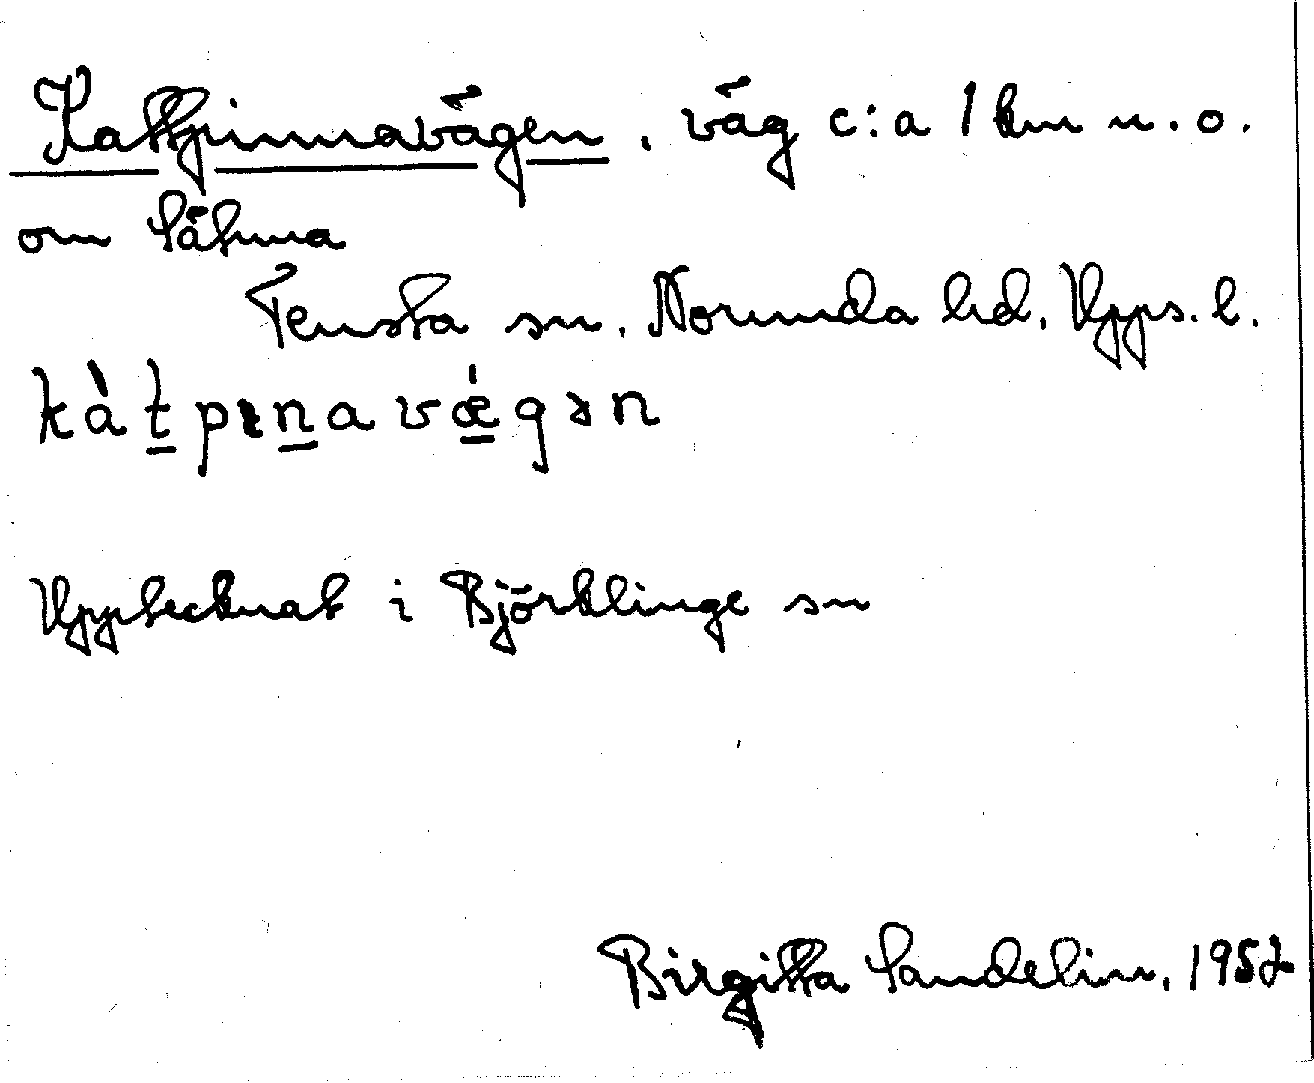 Kattpinnavägen, väg c:a 1 km n.o.
om Sätuna
Tensta sn. Norunda hd. Upps. l.
kàt̲pɪn̲avǽ̲gən
Upptecknat i Björklinge sn
Birgitta Sandelin, 1952